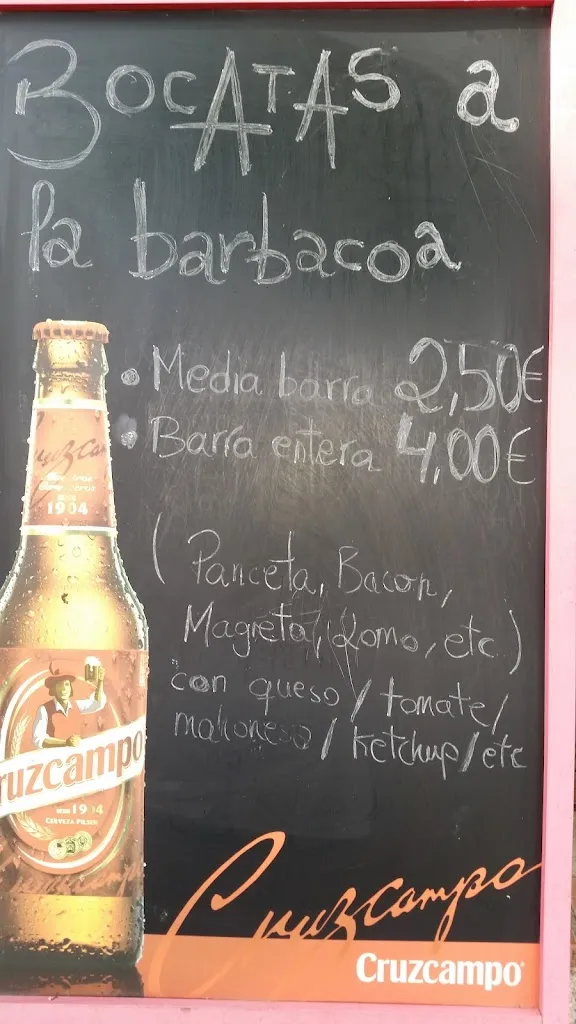 BocATAS a
la barbacoa
• Media barra 2,50€
• Barra entera 4,00€
(Panceta, Bacon,
Magreta, Lomo, etc)
con queso/tomate/
mahonesa/ketchup/etc
1904
ruzcampo
1904
CERVEZA PILSEN
Cruzcampo
Cruzcampo